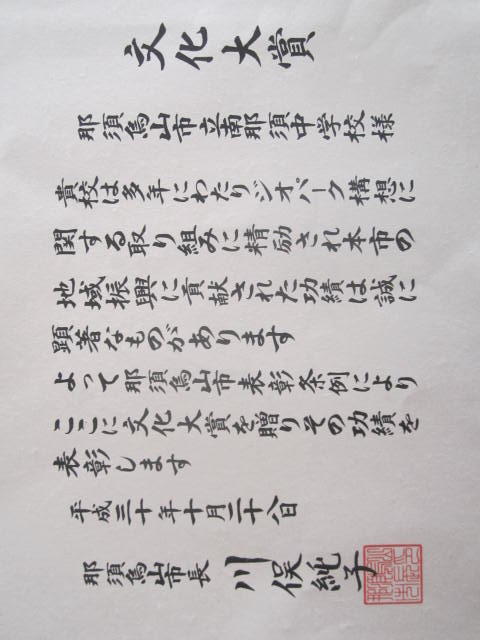 文化大賞
那須烏山市立南那須中学校様
貴校は多年にわたりジオパーク構想に
関する取り組みに精励され本市の
地域振興に貢献された功績は誠に
顕著なものがあります
よって那須烏山市表彰条例により
ここに文化大賞を贈りその功績を
表彰します
平成三十年十月二十八日
那須烏山市長 川俣純子